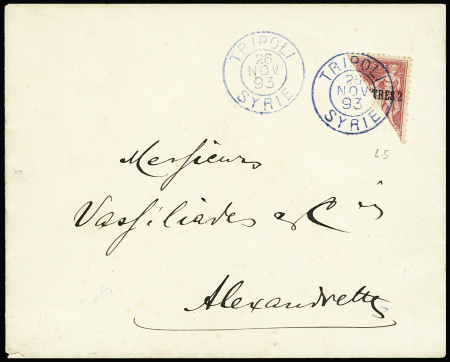 TRIPOLI
26
NOV
93
SYRIE
TRIPOLI
26
NOV
93
SYRIE
TRES 2
25
Messieurs
Vassiliades & Cie
Alexandrette